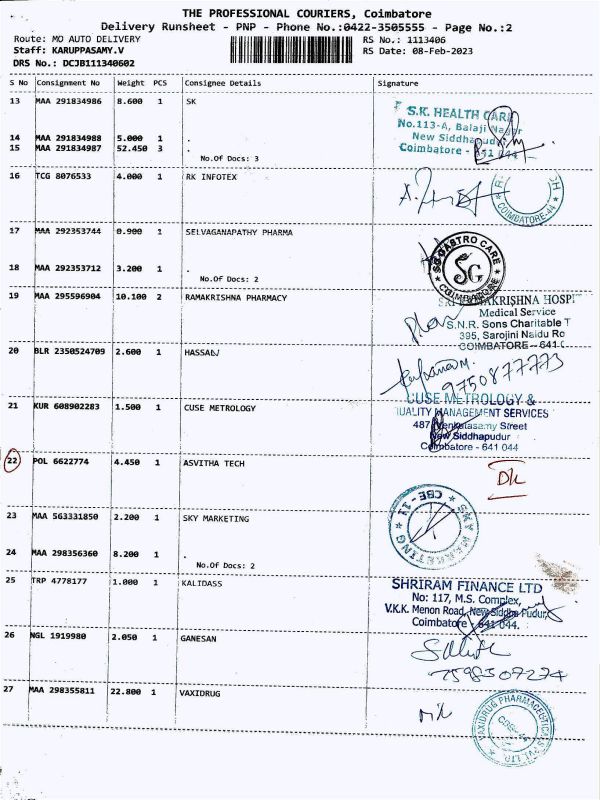 THE PROFESSIONAL COURIERS, Coimbatore
Delivery Runsheet - PNP - Phone No.:0422-3505555 - Page No.:2
Route: MO AUTO DELIVERY RS No.: 1113406
Staff: KARUPPASAMY.V RS Date: 08-Feb-2023
DRS No.: DCJB111340602
S No Consignment No Weight PCS Consignee Details Signature
13 MAA 291834986 8.600 1 SK
S.K. HEALTH CARE
No.113-A, Balaji Nagar
New Siddhapudur
Coimbatore - 641 044
14 MAA 291834988 5.000 1 .
15 MAA 291834987 52.450 3 .
No.Of Docs: 3
16 TCG 8076533 4.000 1 RK INFOTEX
COIMBATORE-44
17 MAA 292353744 0.900 1 SELVAGANAPATHY PHARMA
SG GASTRO CARE
SG
COIMBATORE
18 MAA 292353712 3.200 1 .
No.Of Docs: 2
19 MAA 295596904 10.100 2 RAMAKRISHNA PHARMACY
SRI RAMAKRISHNA HOSPI
Medical Service
S.N.R. Sons Charitable T
395, Sarojini Naidu Ro
COIMBATORE - 641
20 BLR 2350524709 2.600 1 HASSADJ
9750877773
21 KUR 608902283 1.500 1 CUSE METROLOGY
CUSE METROLOGY &
UALITY MANAGEMENT SERVICES
487, Venkatasamy Street
New Siddhapudur
Coimbatore - 641 044
22 POL 6622774 4.450 1 ASVITHA TECH
23 MAA 563331850 2.200 1 SKY MARKETING
SKY MARKETING
CBE-11
24 MAA 298356360 8.200 1 .
No.Of Docs: 2
25 TRP 4778177 1.000 1 KALIDASS
SHRIRAM FINANCE LTD
No: 117, M.S. Complex,
V.K.K. Menon Road, New Siddha Pudur,
Coimbatore - 641 044.
26 NGL 1919980 2.050 1 GANESAN
7598307274
27 MAA 298355811 22.800 1 VAXIDRUG
VAXIDRUG PHARMACEUTICALS PVT LTD